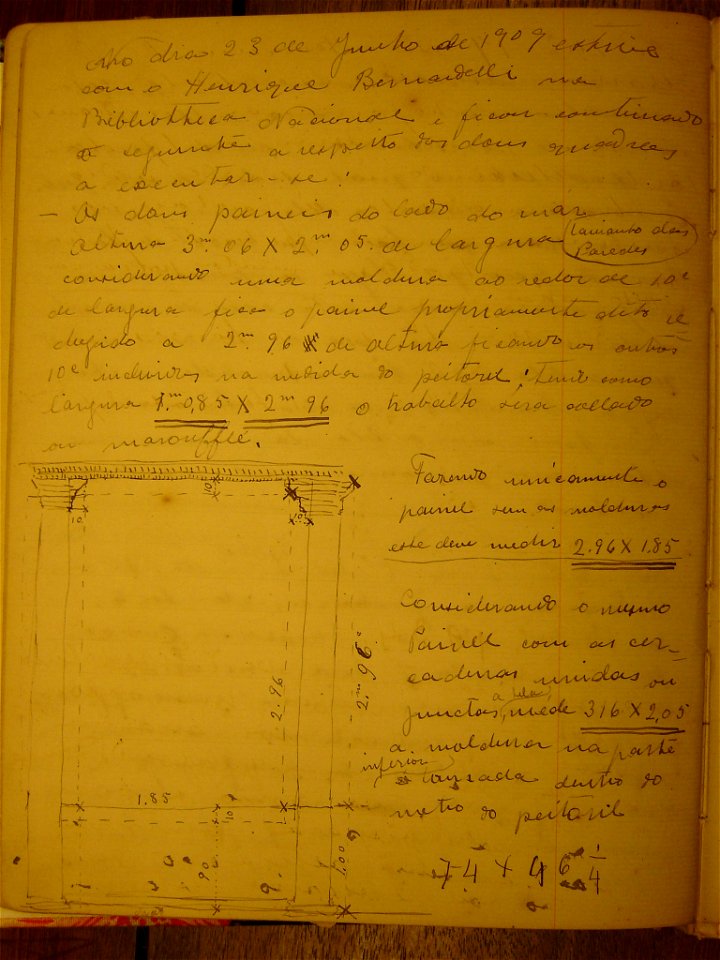 No dia 23 de Junho de 1909 estive
com o Henrique Bernardelli na
Bibliotheca Nacional e ficou combinado
o seguinte a respeito dos dous quadros
a executar-se:
— Os dous paineis do lado do mar
altura 3m.06 X 2m.05. de largura
tamanho das
Paredes
considerando uma moldura ao redor de 10c
de largura fica o painel propriamente dito re
dusido a 2m.96 de altura ficando os outros
10c incluidos na medida do peitoril; tendo como
largura 1m.85 X 2m 96 o trabalho sera collado
ou marouflé.
Fazendo unicamente o
painel sem as molduras
este deve medir 2.96 X 1.85
Considerando o mesmo
Painel com as cer-
caduras unidas ou
junctas, mede 316 X 2,05
a moldura na parte
inferior
lançada dentro do
metro do peitoril
74 x 46 1/4
10
10
10
2.96
2.m96.
1.85
10
90
1.00